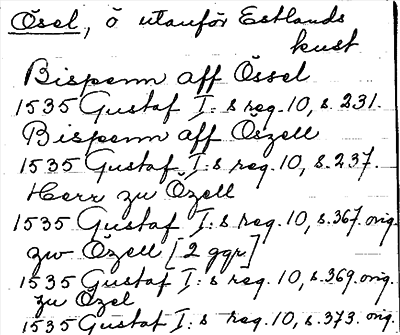 Ösel, ö utanför Estlands
kust
Bispenn aff Össel
1535 Gustaf I:s reg. 10, s. 231.
Bispenn aff Öszell
1535 Gustaf I:s reg. 10, s. 237.
Herr zu Özell
1535 Gustaf I:s reg. 10, s. 367. orig.
zw Özell [2 ggr.]
1535 Gustaf I:s reg. 10, s. 369. orig.
zu Ozel
1535 Gustaf I:s reg. 10, s. 373. orig.